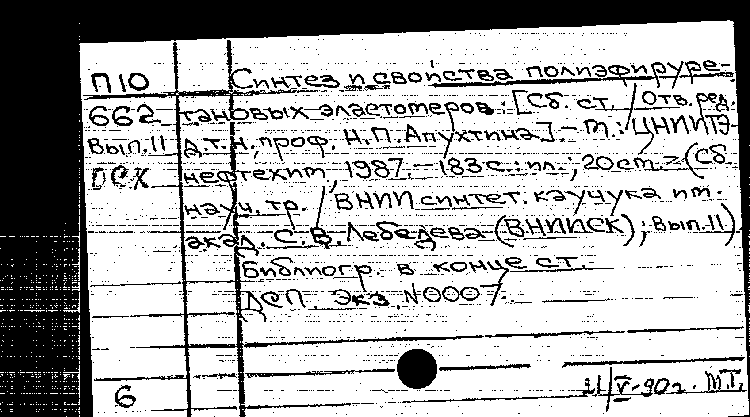 П10 Синтез и свойства полиэфируре-
662 тановых эластомеров: [Сб. ст. / Отв. ред.
Вып.11 д.т.н., проф. Н.П. Апухтина]. – М.: ЦНИИТЭ-
ОСК нефтехим, 1987. – 183 с.: ил.; 20 см. – (Сб.
науч. тр. / ВНИИ синтет. каучука им.
акад. С.В. Лебедева (ВНИИСК); Вып.11)
Библиогр. в конце ст.
ДСП. Экз. N0007.
6 21/V-90г. М.Т.